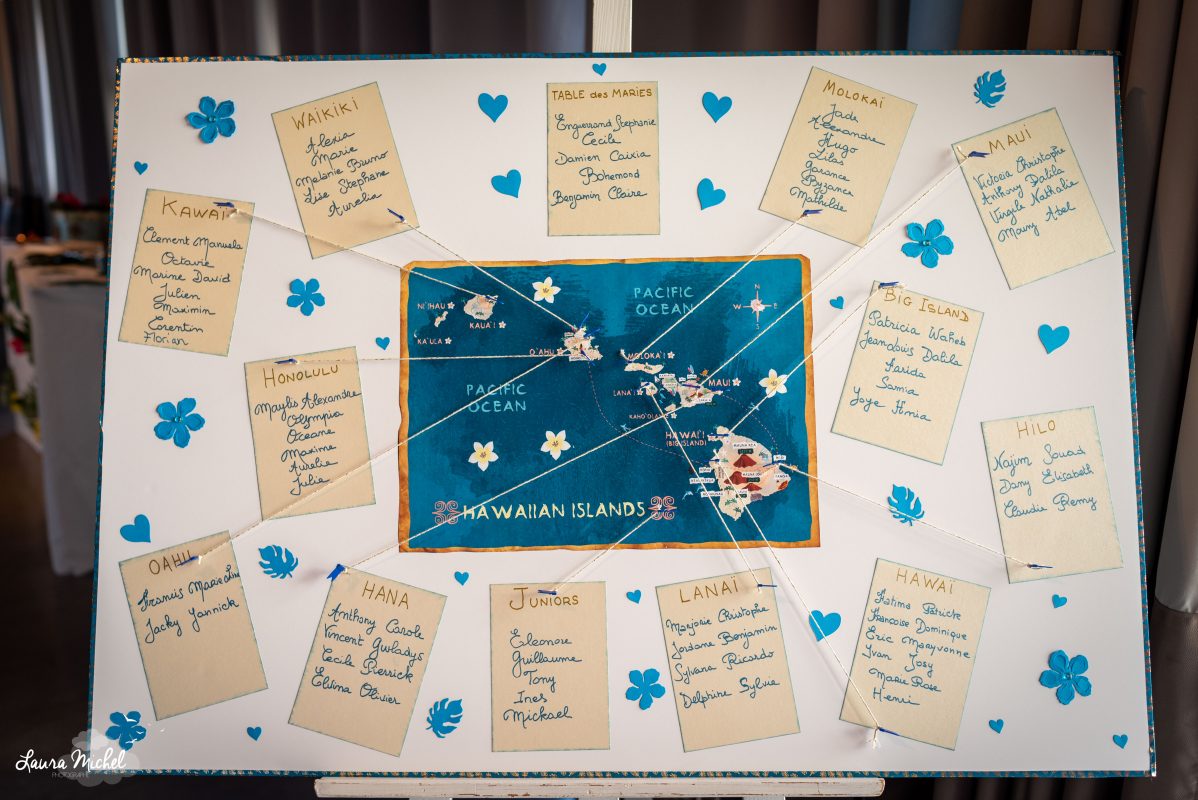 WAIKIKI
Alexia
Marie
Melanie Bruno
Lise Stephane
Aurelia
TABLE des MARIES
Enguerrand Stephanie
Cecile
Damien Caixia
Bohemond
Benjamin Claire
MOLOKAÏ
Jade
Alexandre
Hugo
Lilas
Garance
Byzance
Mathilde
MAUI
Victoria Christophe
Anthony Dalila
Virgile Nathalie
Maury Abel
KAWAÏ
Clement Manuela
Octavie
Marine David
Julien
Maximin
Corentin
Florian
HONOLULU
Maylis Alexandre
Olympia
Oceane
Maxime
Aurelie
Julia
NI'IHAU
KAUA'I
KA'ULA
O'AHU
PACIFIC
OCEAN
N
W E
S
MOLOKA'I
LANA'I
MAUI
KAHO'OLAWE
PACIFIC
OCEAN
HAWAI'I
(BIG ISLAND)
MAUNA KEA
MAUNA LOA
HAWAIIAN ISLANDS
BIG ISLAND
Patricia Waheb
Jeanlouis Dalila
Farida
Samia
Joye Hinia
HILO
Najim Souad
Dany Elisabeth
Claudie Remy
OAHU
Francis Marie Line
Jacky Yannick
HANA
Anthony Carole
Vincent Gwladys
Cecile Pierrick
Elvina Olivier
JUNIORS
Eleonore
Guillaume
Tony
Ines
Mickael
LANAÏ
Marjorie Christophe
Jordane Benjamin
Sylvana Ricardo
Delphine Sylvie
HAWAÏ
Fatima Patrick
Françoise Dominique
Eric Maryvonne
Ivan Josy
Marie Rose
Henri
Laura Michel
PHOTOGRAPHE